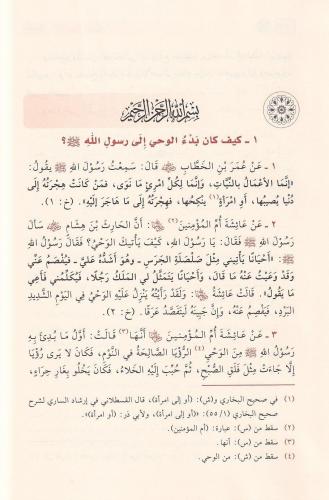 بسم الله الرحمن الرحيم
١ ـ كيف كان بَدْءُ الوحي إلى رسولِ اللهِ ﷺ؟
١ ـ عَنْ عُمَرَ بْنِ الْخَطَّابِ رضي الله عنه قَالَ: سَمِعْتُ رَسُولَ اللهِ ﷺ يقُولُ:
«إِنَّمَا الأَعْمَالُ بِالنِّيَّاتِ، وَإِنَّمَا لِكُلِّ امْرِئٍ مَا نَوَى، فَمَنْ كَانَتْ هِجْرَتُهُ إِلَى
دُنْيَا يُصِيبُهَا، أَوِ امْرَأَةٍ(١) يَنْكِحُهَا، فَهِجْرَتُهُ إِلَى مَا هَاجَرَ إِلَيْهِ». (خ: ١).
٢ ـ عَنْ عَائِشَةَ أُمِّ الْمُؤْمِنِينَ(٢) رضي الله عنها: أَنَّ الْحَارِثَ بْنَ هِشَامٍ رضي الله عنه سَأَلَ
رَسُولَ اللهِ ﷺ فَقَالَ: يَا رَسُولَ اللهِ، كَيْفَ يَأْتِيكَ الْوَحْيُ؟ فَقَالَ رَسُولُ اللهِ
ﷺ: «أَحْيَانًا يَأْتِينِي مِثْلَ صَلْصَلَةِ الْجَرَسِ ـ وَهُوَ أَشَدُّهُ عَلَيَّ ـ فَيُفْصَمُ عَنِّي
وَقَدْ وَعَيْتُ عَنْهُ مَا قَالَ، وَأَحْيَانًا يَتَمَثَّلُ لِيَ الْمَلَكُ رَجُلًا، فَيُكَلِّمُنِي فَأَعِي
مَا يَقُولُ». قَالَتْ عَائِشَةُ رضي الله عنها: وَلَقَدْ رَأَيْتُهُ يَنْزِلُ عَلَيْهِ الْوَحْيُ فِي الْيَوْمِ الشَّدِيدِ
الْبَرْدِ، فَيَفْصِمُ عَنْهُ، وَإِنَّ جَبِينَهُ لَيَتَفَصَّدُ عَرَقًا. (خ: ٢).
٣ ـ عَنْ عَائِشَةَ أُمِّ الْمُؤْمِنِينَ رضي الله عنها أَنَّهَا(٣) قَالَتْ: أَوَّلُ مَا بُدِئَ بِهِ
رَسُولُ اللهِ ﷺ مِنَ الْوَحْيِ(٤) الرُّؤْيَا الصَّالِحَةُ فِي النَّوْمِ، فَكَانَ لَا يَرَى رُؤْيَا
إِلَّا جَاءَتْ مِثْلَ فَلَقِ الصُّبْحِ، ثُمَّ حُبِّبَ إِلَيْهِ الْخَلَاءُ، فَكَانَ يَخْلُو بِغَارِ حِرَاءٍ،
(١) في صحيح البخاري و(ش): «أو إلى امرأة»، قال القسطلاني في إرشاد الساري لشرح
صحيح البخاري (١/٥٥): «أو إلى امرأة»، ولأبي ذر: «أو امرأة».
(٢) سقط من (س): عبارة: (أم المؤمنين).
(٣) سقط من (س): أنها.
(٤) سقط من (ش): من الوحي.